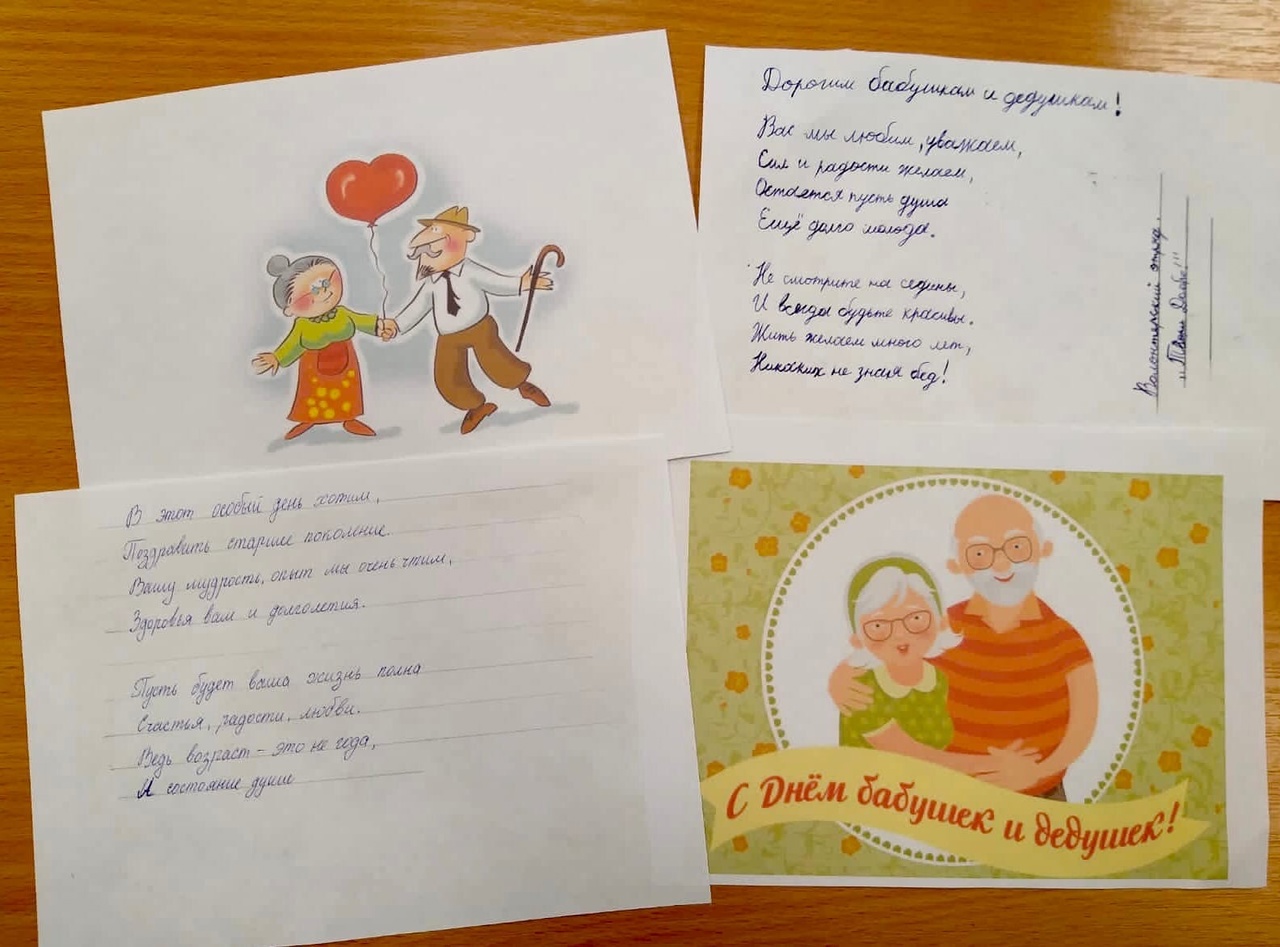 Дорогим бабушкам и дедушкам!
Вас мы любим, уважаем,
Сил и радости желаем,
Остаётся пусть душа
Ещё долго молода.
Не смотрите на седины,
И всегда будьте красивы.
Жить желаем много лет,
Никаких не зная бед!
Волонтёрский отряд.
"Твори Добро!"
В этот особый день хотим,
Поздравить старшее поколение.
Вашу мудрость, опыт мы очень чтим,
Здоровья вам и долголетия.
Пусть будет ваша жизнь полна
Счастья, радости, любви.
Ведь возраст – это не года,
А состояние души
С Днём бабушек и дедушек!